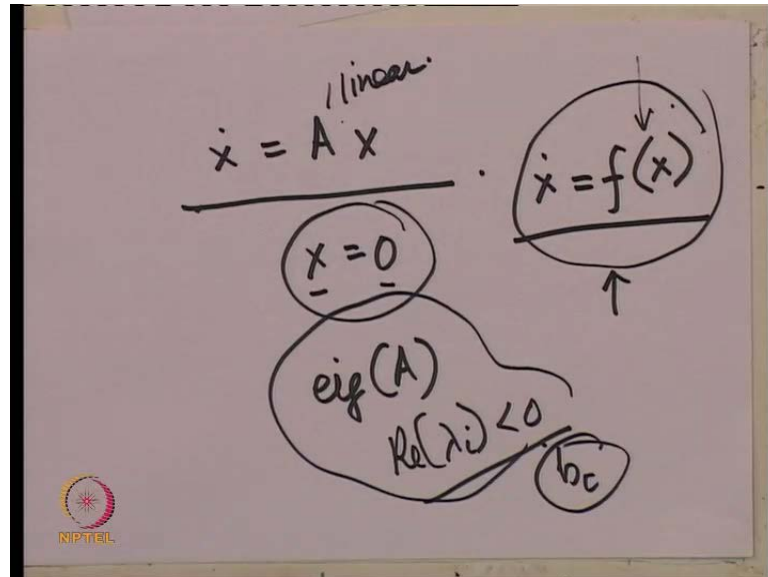 linear.
ẋ = A x
ẋ = f(x)
x = 0
eig(A)
Re(λi) < 0
bc
NPTEL